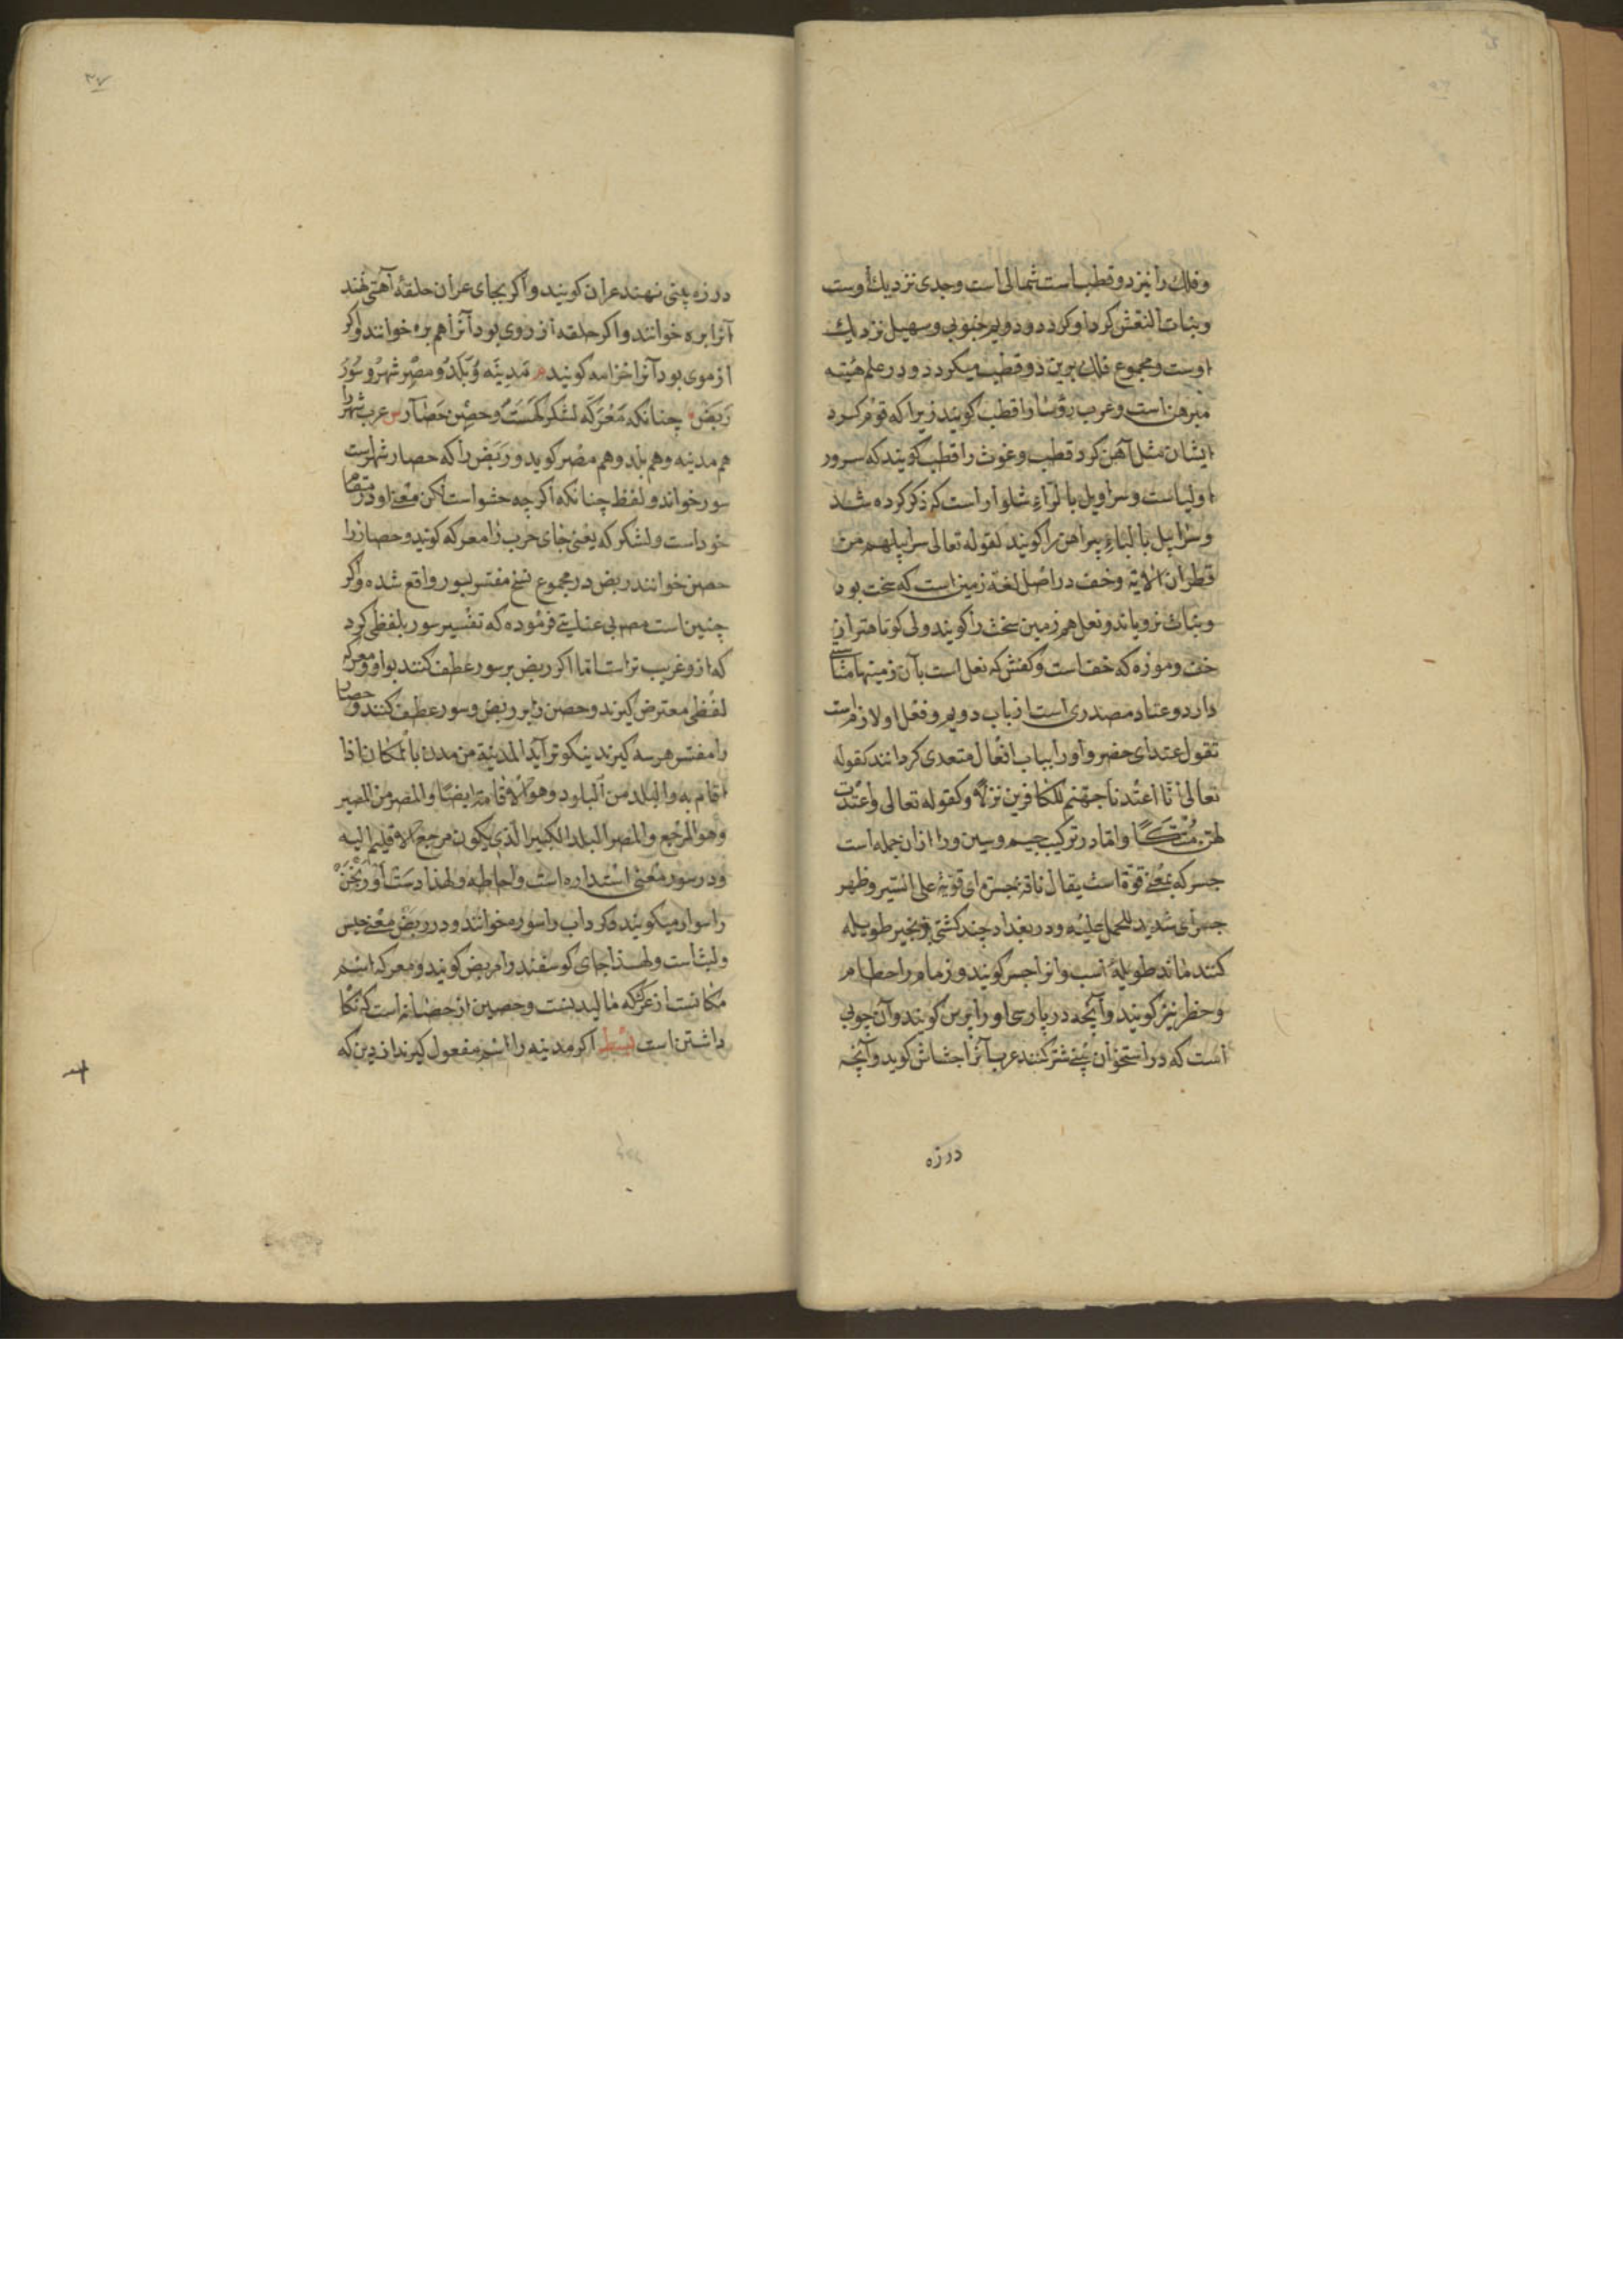 وفلك را نیز دو قطب است شمالی است وجدی نزدیك اوست
وبنات النعش کرد او کردد ودویم جنوبی وسهیل نزدیك
اوست ومجموع فلك برین دو قطب میکردد ودر علم هیئه
مبرهن است وعرب رؤسا را قطب کویند زیرا که قوم کرد
ایشان مثل آهن کرد قطب وغوث را قطب کویند که سرور
اولیاست وسراویل بالراء شلوار است که ذکر کرده شد
وسرابیل بالباء پیراهن را کویند لقوله تعالی سرابیلهم من
قطران الایة وخف در اصل لغة زمین است که سخت بود
ونبات نرویاند ونعل هم زمین سخت را کویند ولی کوتاهتر از
خف وموزه که خف است وکفش که نعل است بآن زمینها مناسبتی
دارد وعتاد مصدری است از باب دویم وفعل او لازم است
تقول عتد ای حضر واو را بباب افعال متعدی کردانند کقوله
تعالی انا اعتدنا جهنم للکافرین نزلا وکقوله تعالی واعتدت
لهن متکـًا واما در ترکیب جیم وسین ورا ازان جمله است
جسر که بمعنی قوة است یقال ناقة جسرة ای قویة علی السیر وظهر
جسر ای شدید للحمل علیه ودر بغداد چند کشتی بزنجیر طویله
کنند مانند طویلهٔ اسب وانرا جسر کویند وزمام را حطام
وخطر نیز کویند وآنچه در پارسی او را برس کویند وآن چوبی
است که در استخوان بینی شتر کنند عرب آنرا خشاش کوید وآنچه
درزه
۳۷
درزه بینی نهند عران کویند واکر بجای عران حلقهٔ آهنی نهند
آنرا بره خوانند واکر حلقه از روی بود آنرا هم بره خوانند واکر
از موی بود آنرا خزامه کویند م مدینه وبلد ومصر شهر وسور
ربض چنانکه معرکه لشکرکهست وحصن حصار س عرب شهر را
هم مدینه وهم بلد وهم مصر کوید وربض را که حصار شهرست
سور خواند ولفظ چنانکه اکر چه حشو است لکن معنی او در مقام
خود است ولشکرکه یعنی جای حرب را معرکه کویند وحصار را
حصن خوانند ربض در مجموع نسخ مفسر بسور واقع شده واکر
چنین است مص بی عنایتی فرموده که تفسیر سور بلفظی کرد
که ازو غریب تر است اما اکر ربض بر سور عطف کنند بواو ومعرکه
لفظی معترض کیرند وحصن را بر ربض وسور عطف کنند وحصار
را مفسر هر سه کیرند نیکوتر آید المدینة من مدن بالمکان اذا
اقام به والبلد من البلود وهو الاقامة ایضا والمصر من المصیر
وهو المرجع والمصر البلد الکبیر الذی یکون مرجع الاقلیم الیه
ودر سور معنی استداره است واحاطه ولهذا دست آورنجن
را سوار میکویند وکرداب را سوره خوانند ودر ربض معنی حبس
ولبث است ولهذا جای کوسفند را مربض کویند ومعرکه اسم
مکانست از عرك که مالیدنست وحصین از حصانه است که نکا
داشتن است بسط اکر مدینه را اسم مفعول کیرند از دین که